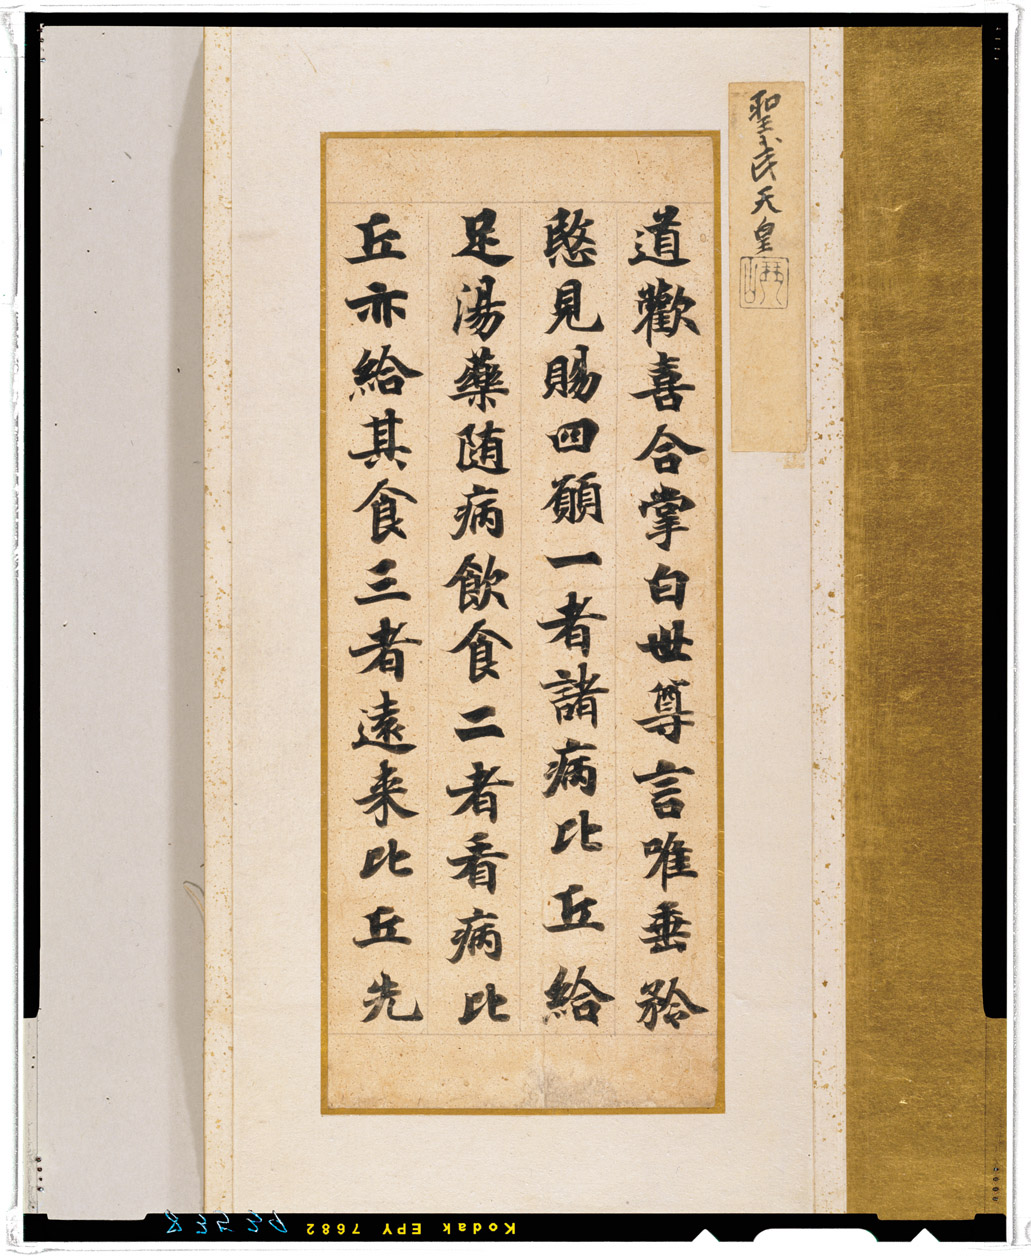 聖武天皇
道歡喜合掌白世尊言唯垂矜
愍見賜四願一者諸病比丘給
足湯藥随病飲食二者看病比
丘亦給其食三者遠来比丘先
Kodak EPY 7682